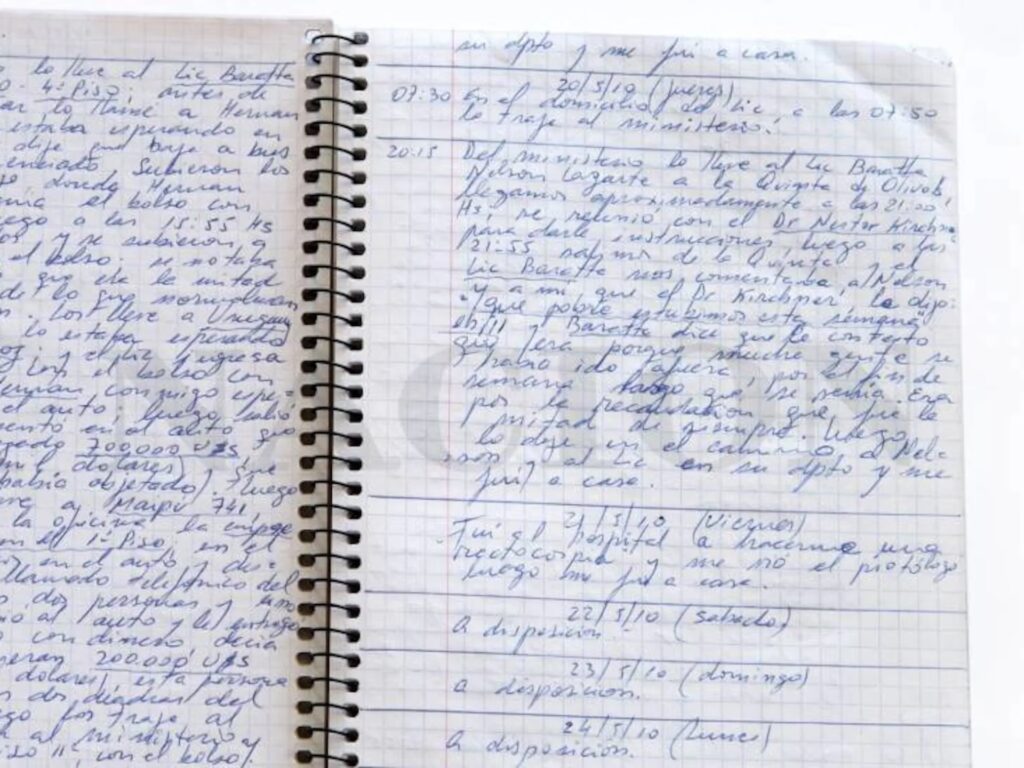 lo lleve al Lic Baratta
4º Piso, antes de
lo llamé a Hernan
estaba esperando en
dije que baje a bus
enciado Subieron los
donde Hernan
el bolso con
ego a las 15:55 Hs
y se subieron a
el bolso. se notaba
que era la mitad
de lo que normalmen
. Los lleve a Uruguay
lo estaba esperando
y ingresa
con el bolso con
Hernan conmigo espe
el auto. luego salió
sentó en el auto que
700.000 U$S
dolares). que
había objetado). luego
a Maipú 741
la oficina la
en el 1º Piso, en el
en el auto y
llamado telefónico del
dos personas y uno
al auto y le entregó
con dinero decía
eran 200.000 U$S
dolares, esta persona
dos del
ego los traje al
al ministerio y
iso 11, con el bolso).
su dpto y me fui a casa.
20/5/10 (jueves)
07:30 En el domicilio del Lic, a las 07:50
lo traje al ministerio.
20:15 Del ministerio lo lleve al Lic Baratta
Nelson Lazarte a la Quinta de Olivos
llegamos aproximadamente a las 21:00
Hs, se reunió con el Dr Nestor Kirchne
para darle instrucciones, luego a las
21:55 salimos de la Quinta y el
Lic Baratta nos comentaba, a Nelson
y a mí que el Dr. Kirchner, le dijo:
"que pobre estuvimos esta semana"
eh!! y Baratta dice que le contestó
que era porque mucha gente se
había ido afuera, por el fin de
semana largo que se venía. Era
por la recaudación que fue la
mitad de siempre. Luego
lo deje en el camino a Nel-
son, y al Lic en su dpto y me
fui a casa.
21/5/10 (Viernes)
Fui al hospital a hacerme una
rectoscopia y me vió el proctólogo
luego me fui a casa.
22/5/10 (Sabado)
a disposición.
23/5/10 (domingo)
a disposición.
24/5/10 (Lunes)
a disposición.
NACION